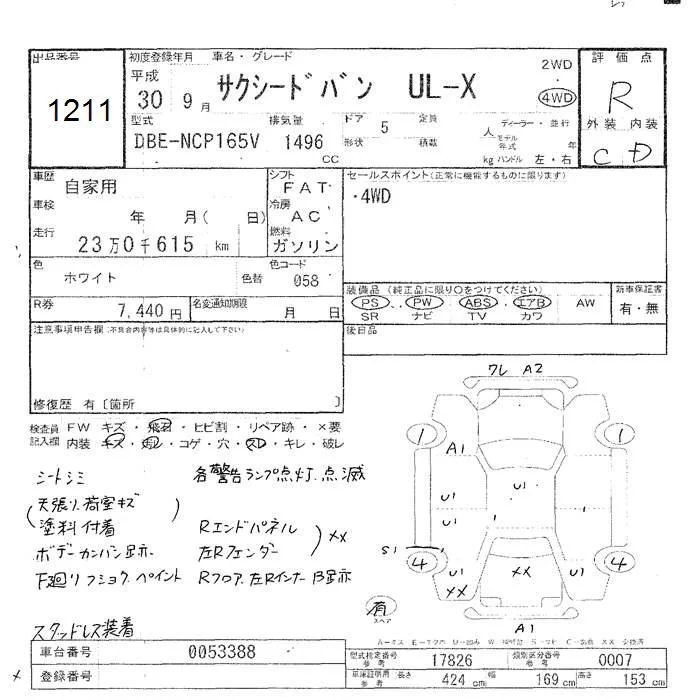 出品番号
1211
初度登録年月 車名・グレード
平成
30 9月
サクシードバン UL-X
2WD
4WD
評価点
R
外装 内装
C D
型式
DBE-NCP165V
排気量
1496
CC
ドア
5
定員
人
形状 積載
kg
ディーラー・並行
モデル年式 年
ハンドル 左・右
車歴
自家用
車検
年 月( 日)
走行
23万0千615 km
シフト
FAT
冷房
AC
燃料
ガソリン
セールスポイント(正常に機能するものに限ります)
・4WD
色
ホワイト
色替
色コード
058
R券
7,440円
名変通知期限
月 日
装備品 (純正品に限り○をつけてください)
PS・・PW・ABS・エアB・ AW
SR ナビ TV カワ
新車保証書
有・無
後日品
注意事項申告欄(不具合内容等は具体的に記入して下さい)
修復歴 有〔箇所 〕
検査員記入欄
FW キズ・飛石・ヒビ割・リペア跡・×要
内装 キズ・汚レ・コゲ・穴・欠品・キレ・破レ
シートシミ
各警告ランプ点灯、点滅
(天張り、荷室キズ)
塗料付着
Rエンドパネル
左Rフェンダー ) ××
ボデーカンバン跡示
下廻りフショク、ペイント
Rフロア、左Rインナー B跡示
スタッドレス装着
ワレ A2
1 1
A1
U1 U1
U1 U1
S1
4 4
U1 ×× U1
××
有
スペア
A1
車台番号 0053388
登録番号
型式指定番号
参考
17826
類別区分番号
参考
0007
車庫証明用
参考
長さ 424 cm 幅 169 cm 高さ 153 cm